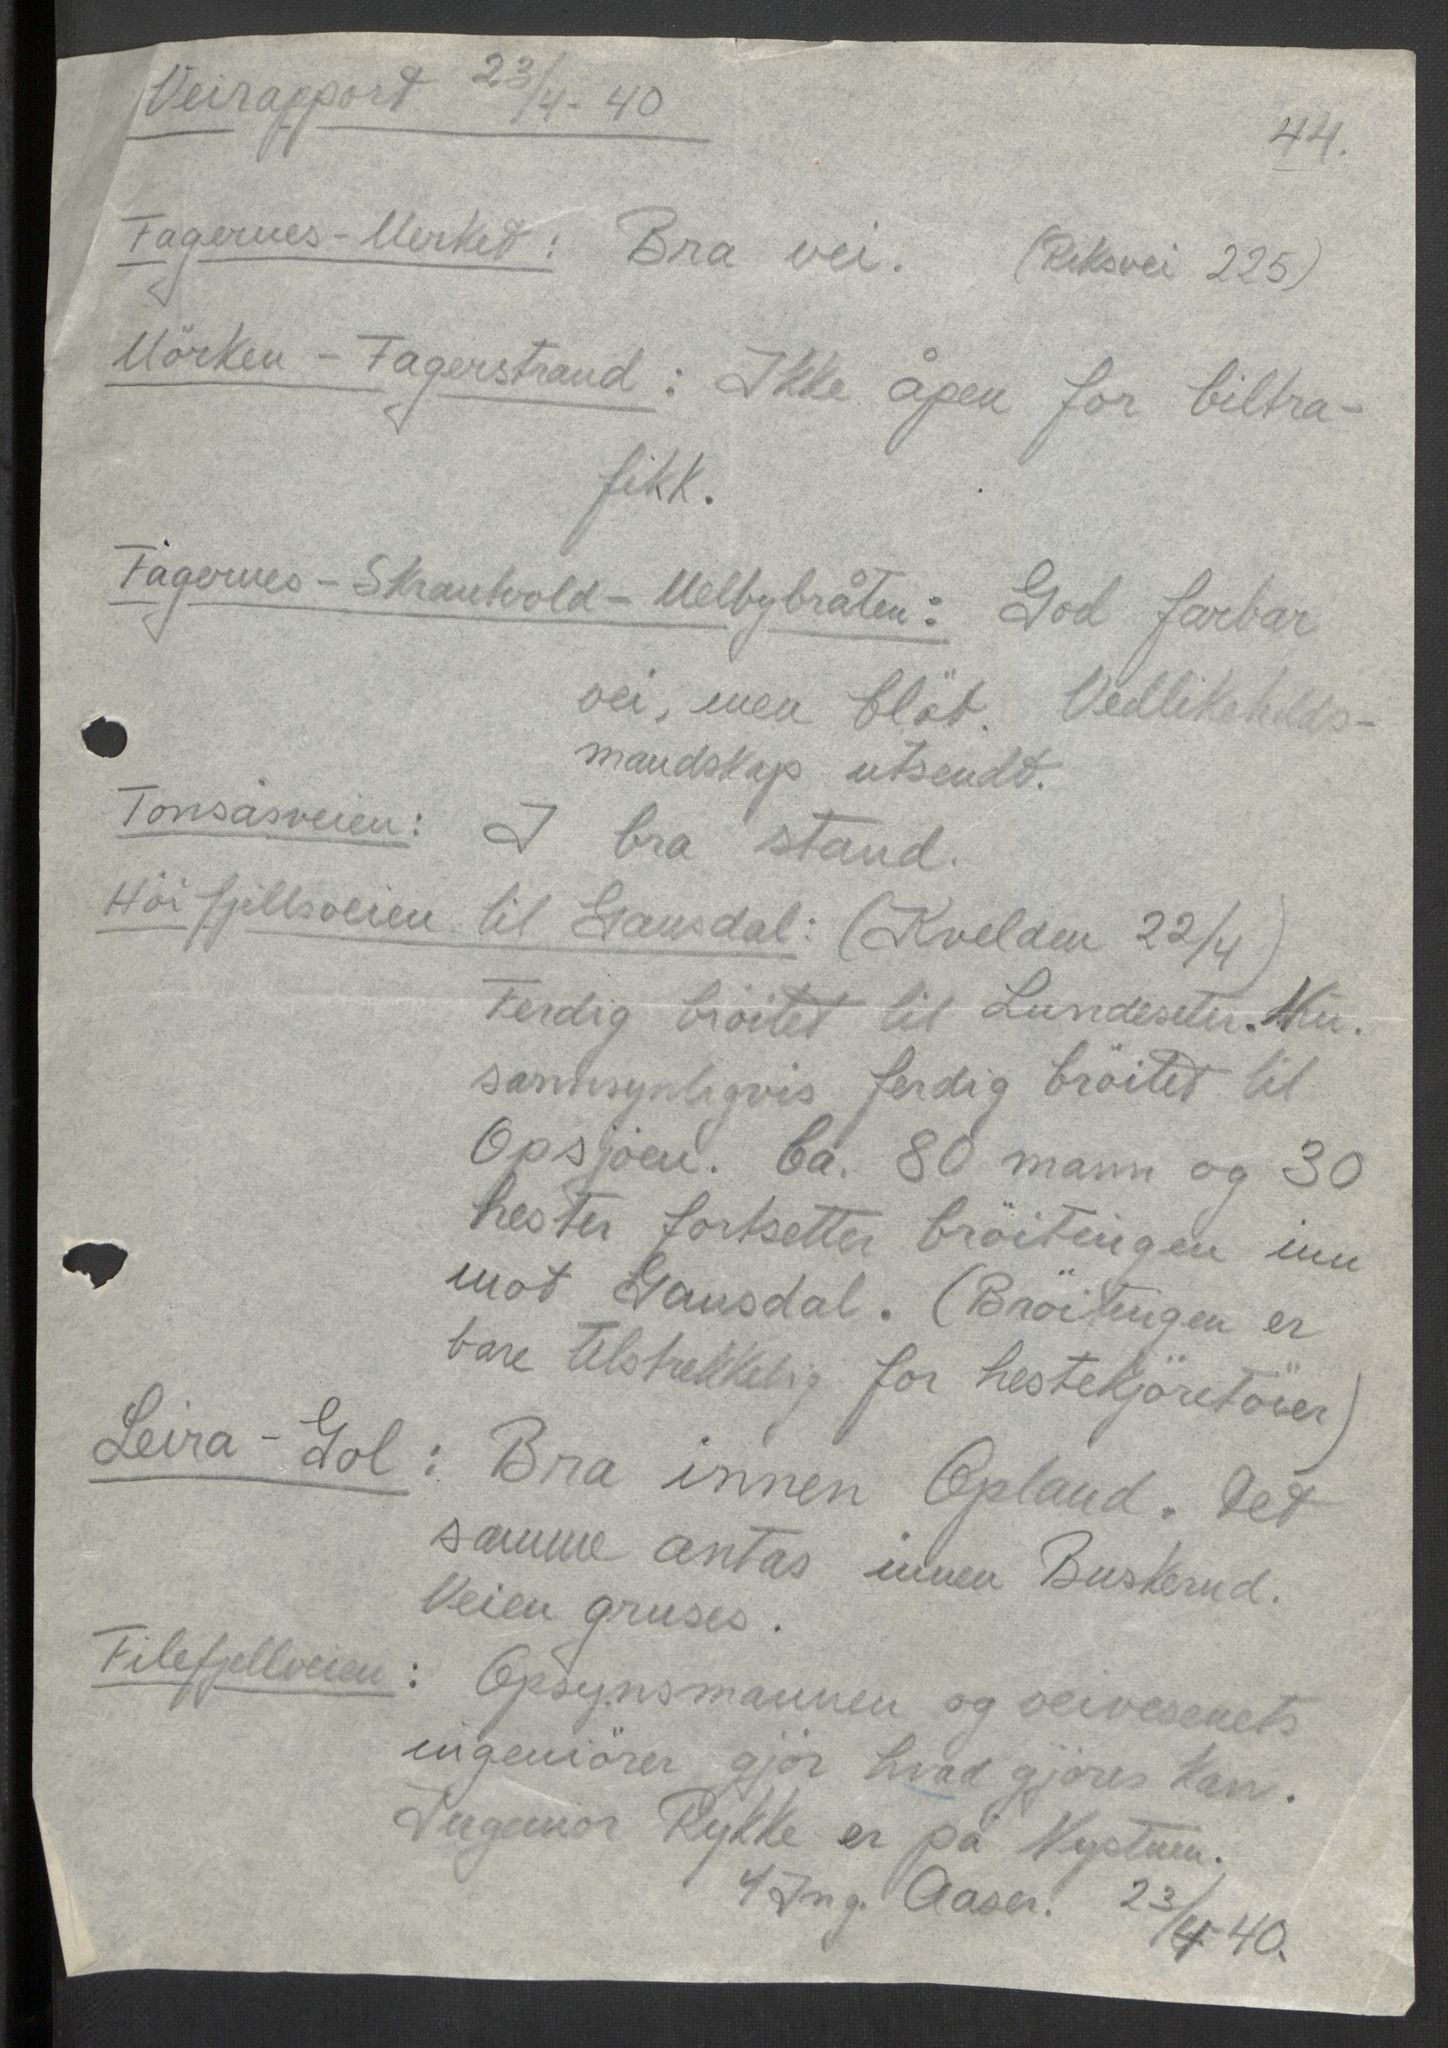 Veirapport 23/4-40
44.
Fagernes-Merket: Bra vei. (Riksvei 225)
Mörken - Fagerstrand: Ikke åpen for biltra-
fikk.
Fagernes-Skrautvold-Melbybråten: God farbar
vei, men blöt. Vedlikeholds-
mandskap utsendt.
Tonsåsveien: I bra stand.
Höifjellsveien til Gausdal: (Kvelden 22/4)
Ferdig bröitet til Lundeseter. Nu.
sannsynligvis ferdig bröitet til
Opsjöen. Ca. 80 mann og 30
hester fortsetter bröitingen inn
mot Gausdal. (Bröitingen er
bare tilstrekkelig for hestekjöretöier)
Leira-Gol: Bra innen Opland. Det
samme antas innen Buskerud.
Veien gruses.
Filefjellveien: Opsynsmannen og veivesenets
ingeniörer gjör hvad gjöres kan.
Ingeniör Rykke er på Nystuen.
Ing. Aaser. 23/4-40.